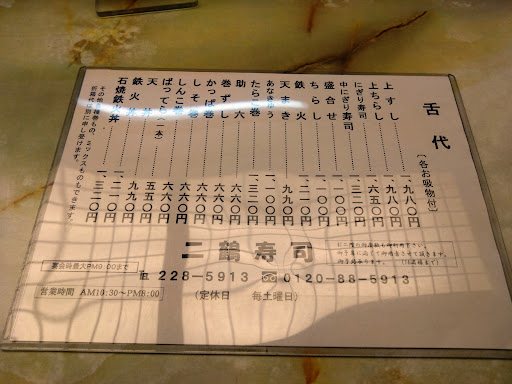 舌代
〔各お吸物付〕
上すし 一、九八〇円
上ちらし 一、九八〇円
にぎり寿司 一、六五〇円
中にぎり寿司 一、三二〇円
盛合せ 一、一〇〇円
ちらし 一、一〇〇円
鉄火 一、二一〇円
天まき 九九〇円
あなきゅう 一、一〇〇円
たらこ巻 一、三二〇円
助六 六六〇円
巻ずし 六六〇円
かっぱ巻 六六〇円
しそ巻 六六〇円
しんこ巻 六六〇円
ばってら(一本) 六六〇円
天丼 五五〇円
鉄火丼 九九〇円
石焼鉄火丼 一、三二〇円
ミックスものもできます。
折箱代は別に申し受けます。
二鶴寿司
℡ 228-5913 0120-88-5913
(定休日 毎土曜日)
宴会時最大PM9:00まで
営業時間 AM10:30～PM8:00